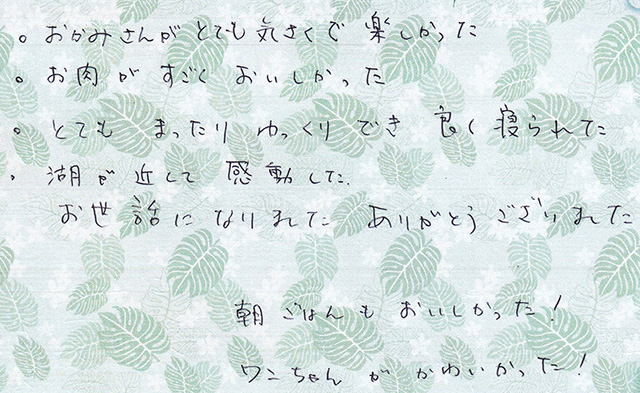 。おかみさんがとても気さくで楽しかった
。お肉がすごくおいしかった
。とてもまったりゆっくりでき良く寝られた
・湖が近くて感動した。
お世話になりました ありがとうございました
朝ごはんもおいしかった!
ワンちゃんがかわいかった!